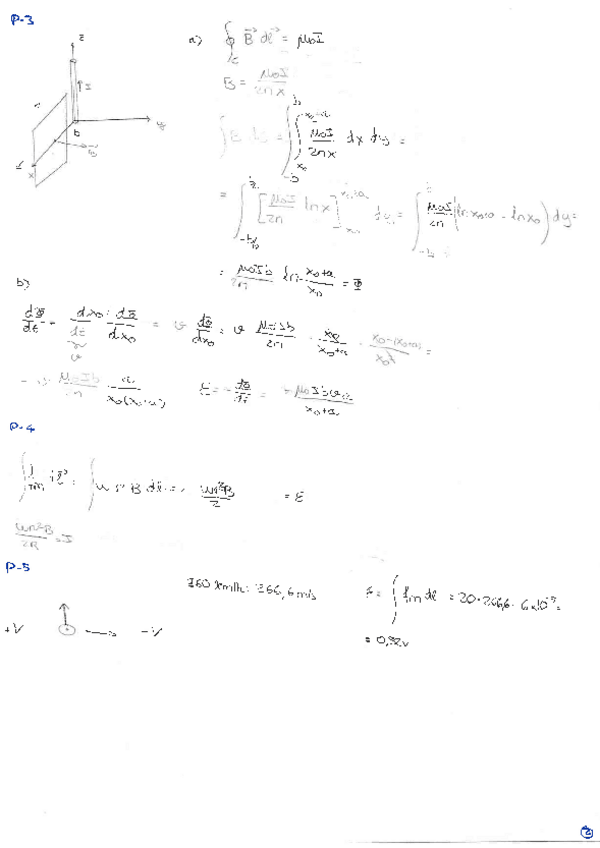 P-3
z
I
b
y
x
a) ∮_c B⃗ dl⃗ = μ₀I
B = μ₀I / 2πx
∫ B ds = ∫_{-b/2}^{b/2} ∫_{x₀}^{x₀+a} μ₀I / 2πx dx dy =
= ∫_{-b/2}^{b/2} [μ₀I / 2π ln x]_{x₀}^{x₀+a} dy = ∫_{-b/2}^{b/2} μ₀I / 2π (ln x₀+a - ln x₀) dy =
= μ₀Ib / 2π ln x₀+a / x₀ = Φ
b)
dΦ/dt = dx₀/dt · dΦ/dx₀ = v dΦ/dx₀ = v μ₀Ib / 2π · x₀ / x₀+a · x₀-(x₀+a) / x₀² =
= -v μ₀Ib / 2π · a / x₀(x₀+a) ε = -dΦ/dt = + μ₀Ibva / x₀+a
P-4
∫ dl⃗ = ∫ ω r B dl = ωr²B / 2 = ε
ωr²B / 2R = I
P-5
= 266,6 m/s
∫ fm dl = 20 · 266,6 · 6x10⁻⁵ =
= 0,32 V
+V
-V
2